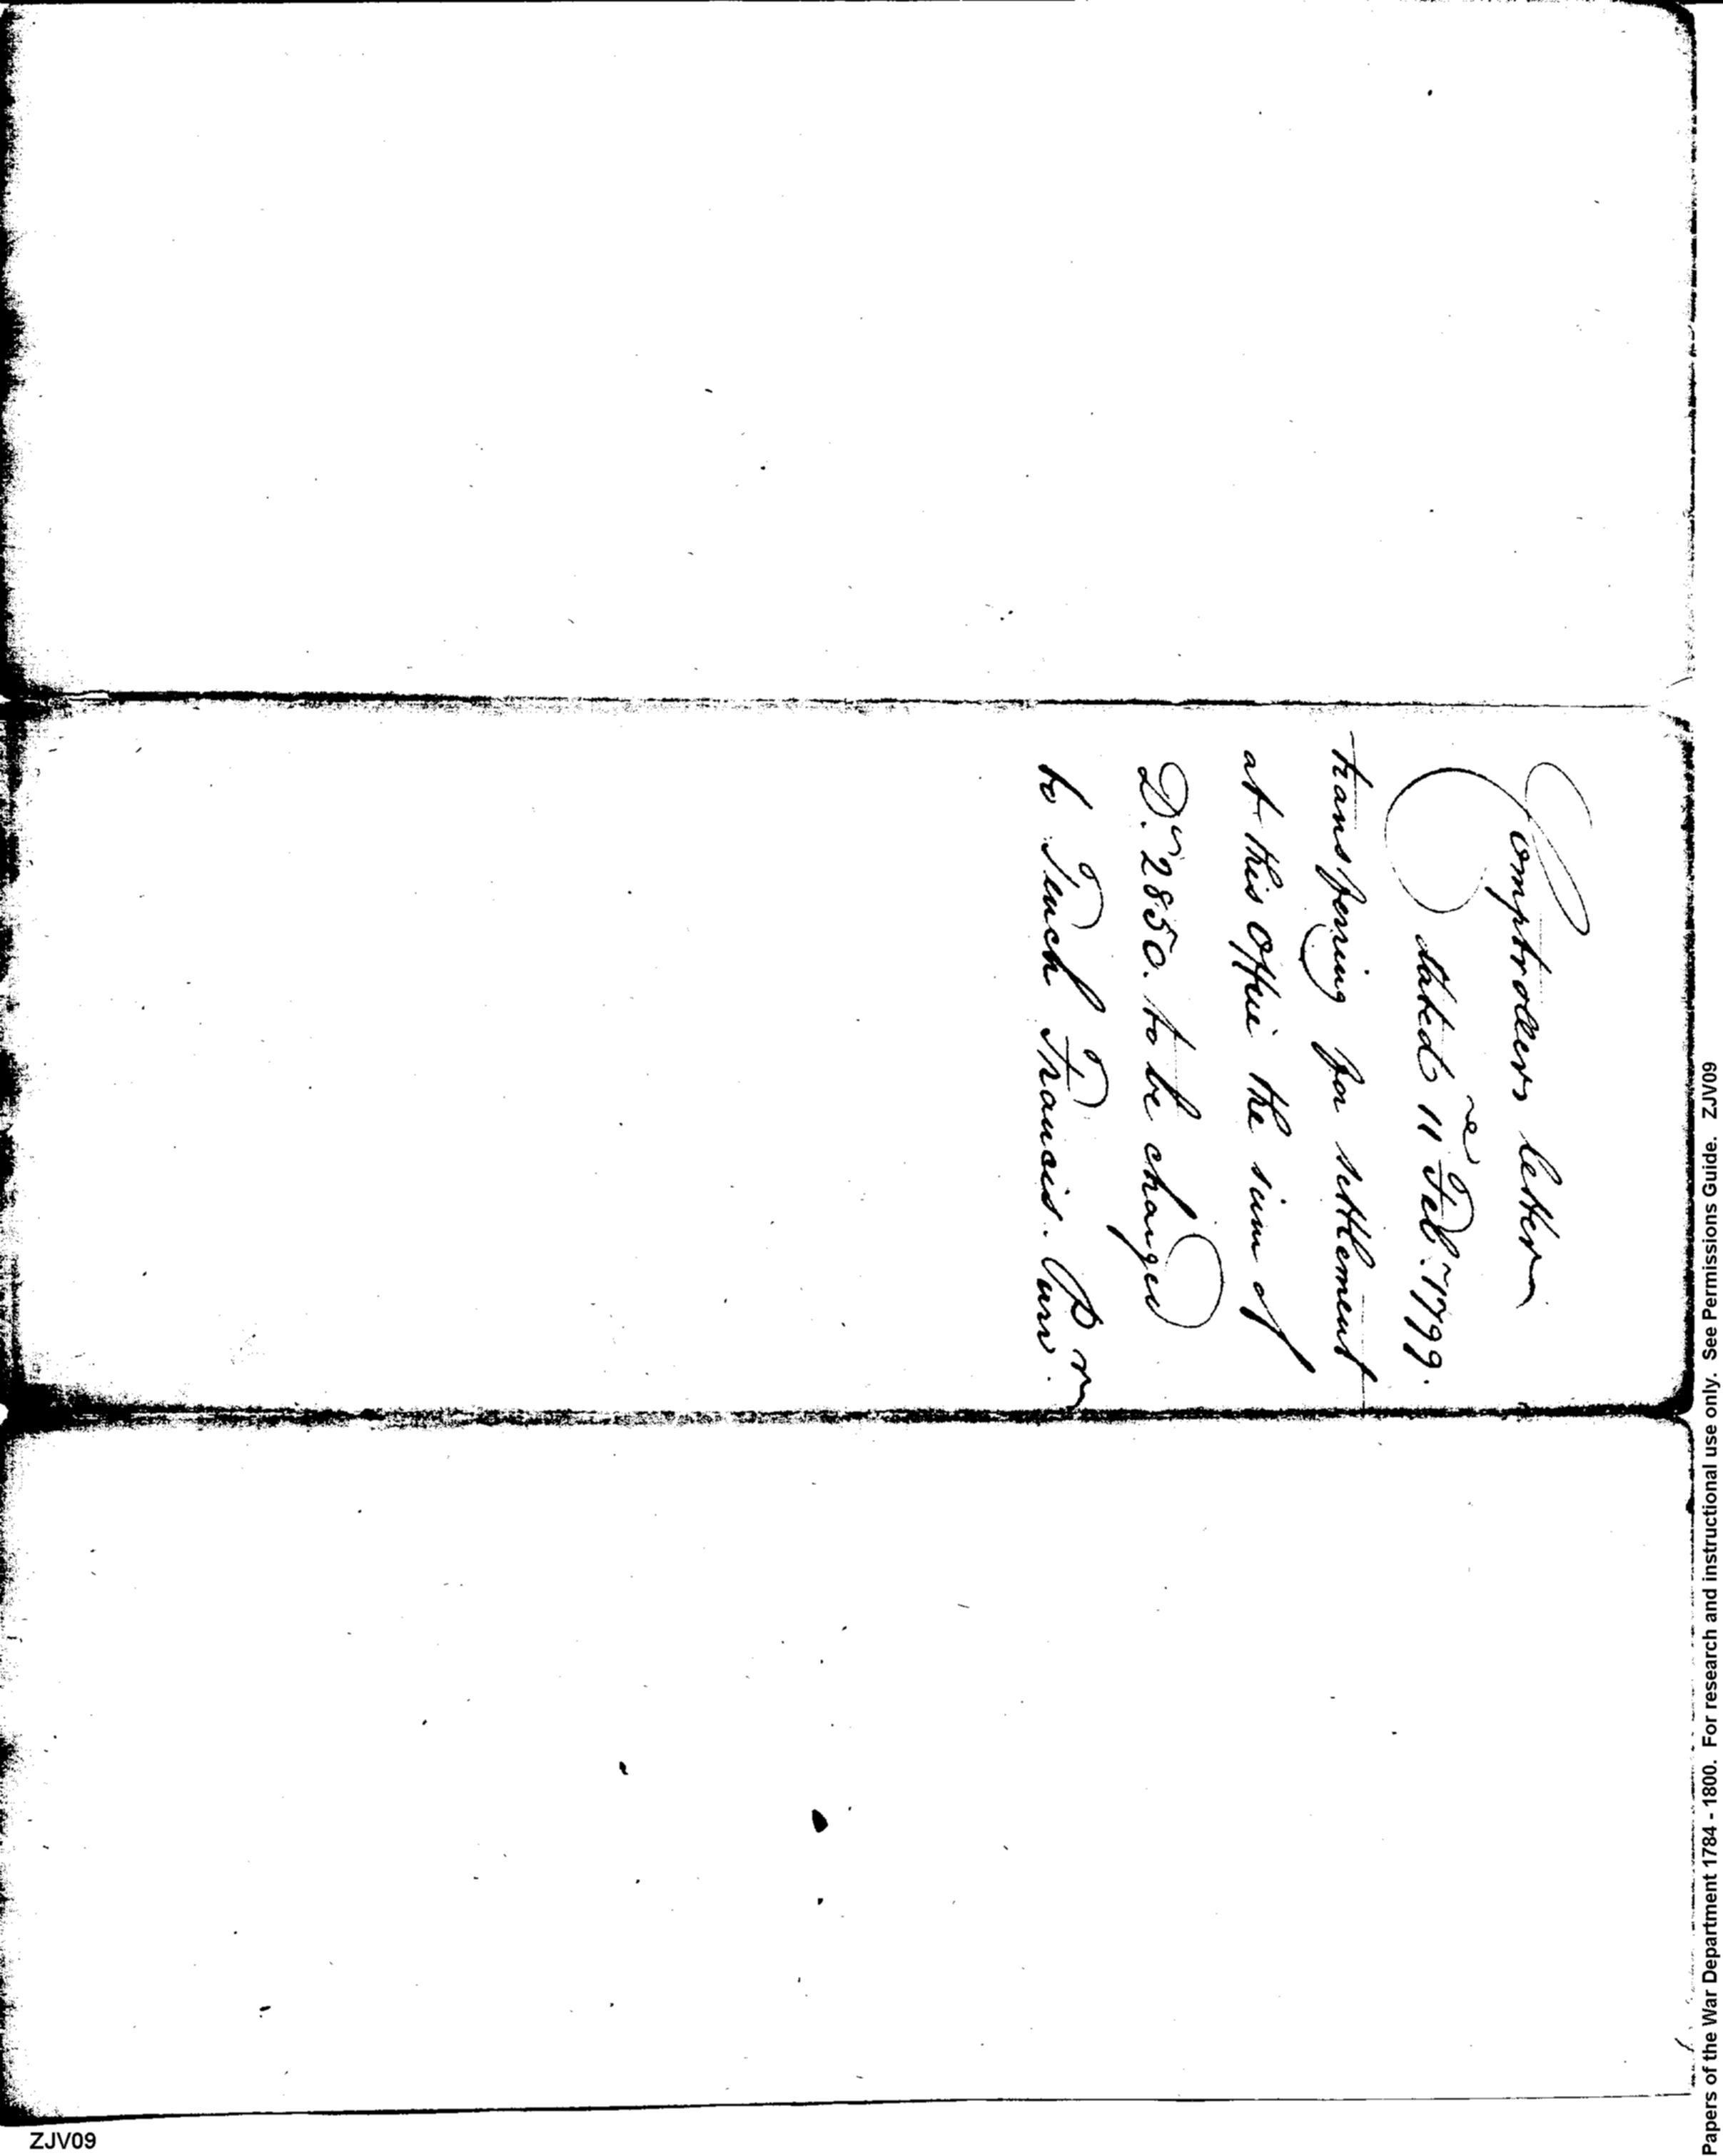 Comptrollers letter
dated 11 Feb. 1799.
transferring for settlement
at this office the sum of
Drs. 2850. to be charged
to Tench Francis.
Papers of the War Department 1784 - 1800. For research and instructional use only. See Permissions Guide. ZJV09
ZJV09